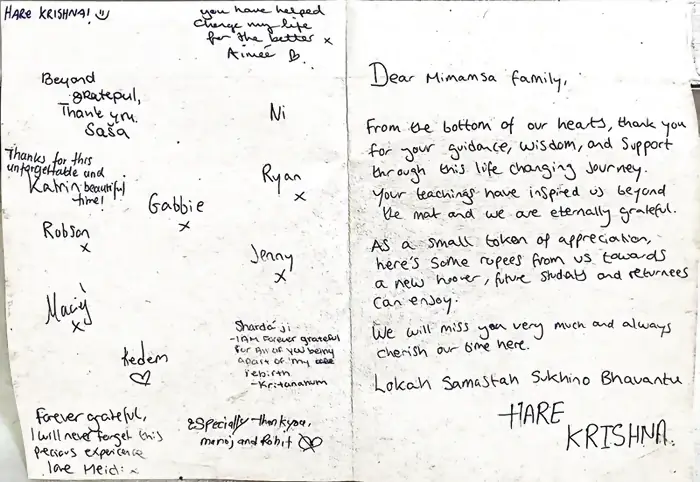 HARE KRISHNA!
you have helped
change my life
for the better x
Aimée
Beyond
grateful,
Thank you.
Saša
Ni
Thanks for this
unforgettable and
Katrin beautiful
time!
Ryan
x
Gabbie
x
Robson
x
Jenny
x
Maciej
x
Kedem
Sharda ji
- I AM Forever grateful
for All of you being
apart of my
rebirth
- Kritananum
Forever grateful,
I will never forget this
precious experience
love Heidi x
Especially thankyou,
manoj and Rohit
Dear Mimansa family,
From the bottom of our hearts, thank you
for your guidance, wisdom, and support
through this life changing journey.
Your teachings have inspired us beyond
the mat and we are eternally grateful.
As a small token of appreciation,
here's some rupees from us towards
a new hoover, future students and returnees
can enjoy.
We will miss you very much and always
cherish our time here.
Lokah Samastah Sukhino Bhavantu
HARE
KRISHNA.